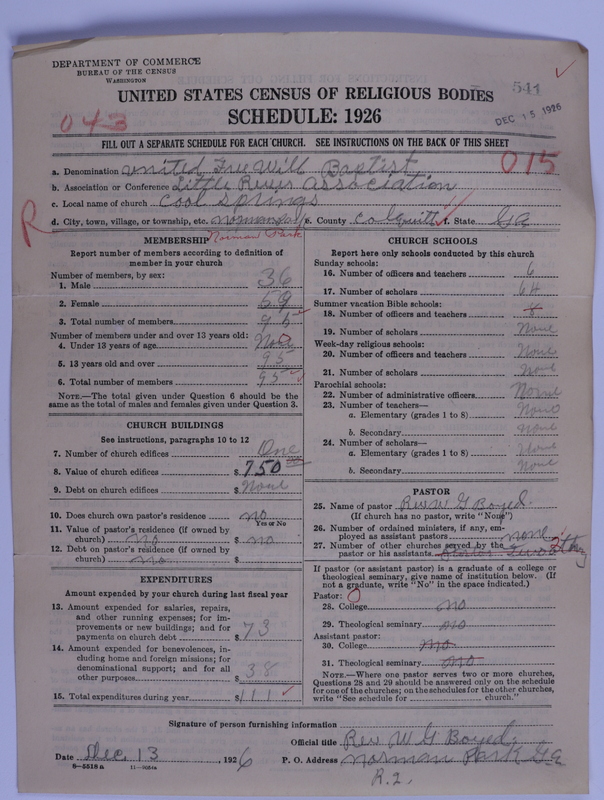 DEPARTMENT OF COMMERCE
BUREAU OF THE CENSUS
WASHINGTON
541
DEC 15 1926
UNITED STATES CENSUS OF RELIGIOUS BODIES
SCHEDULE: 1926
043
FILL OUT A SEPARATE SCHEDULE FOR EACH CHURCH. SEE INSTRUCTIONS ON THE BACK OF THIS SHEET
015
a. Denomination United Free Will Baptist
b. Association or Conference Little River association
c. Local name of church Cool Springs
d. City, town, village, or township, etc. e. County f. State Ga
R
Norman Park
MEMBERSHIP
Report number of members according to definition of member in your church
Number of members, by sex:
1. Male 36
2. Female 59
3. Total number of members 95
Number of members under and over 13 years old:
4. Under 13 years of age
5. 13 years old and over 95
6. Total number of members 95
NOTE.—The total given under Question 6 should be the
same as the total of males and females given under Question 3.
CHURCH BUILDINGS
See instructions, paragraphs 10 to 12
7. Number of church edifices One
8. Value of church edifices $ 750
9. Debt on church edifices $ None
10. Does church own pastor's residence no
Yes or No
11. Value of pastor's residence (if owned by
church) no $ no
12. Debt on pastor's residence (if owned by
church) no $
EXPENDITURES
Amount expended by your church during last fiscal year
13. Amount expended for salaries, repairs,
and other running expenses; for im-
provements or new buildings; and for
payments on church debt $ 73
14. Amount expended for benevolences, in-
cluding home and foreign missions; for
denominational support; and for all
other purposes $ 38
15. Total expenditures during year $ 111
CHURCH SCHOOLS
Report here only schools conducted by this church
Sunday schools:
16. Number of officers and teachers 6
17. Number of scholars 64
Summer vacation Bible schools:
18. Number of officers and teachers
19. Number of scholars None
Week-day religious schools:
20. Number of officers and teachers None
21. Number of scholars None
Parochial schools:
22. Number of administrative officers None
23. Number of teachers—
a. Elementary (grades 1 to 8) None
b. Secondary None
24. Number of scholars—
a. Elementary (grades 1 to 8) None
b. Secondary None
PASTOR
25. Name of pastor Rev W G Boyed
(If church has no pastor, write "None")
26. Number of ordained ministers, if any, em-
ployed as assistant pastors none
27. Number of other churches served by the
pastor or his assistants
If pastor (or assistant pastor) is a graduate of a college or
theological seminary, give name of institution below. (If
not a graduate, write "No" in the space indicated.)
Pastor: 0
28. College no
29. Theological seminary no
Assistant pastor:
30. College no
31. Theological seminary no
NOTE.—Where one pastor serves two or more churches,
Questions 28 and 29 should be answered only on the schedule
for one of the churches; on the schedules for the other churches,
write "See schedule for church."
Signature of person furnishing information
Official title Rev W G Boyed
Date Dec. 13, 1926 P. O. Address Norman Park Ga
8—5518 a
R. 2.